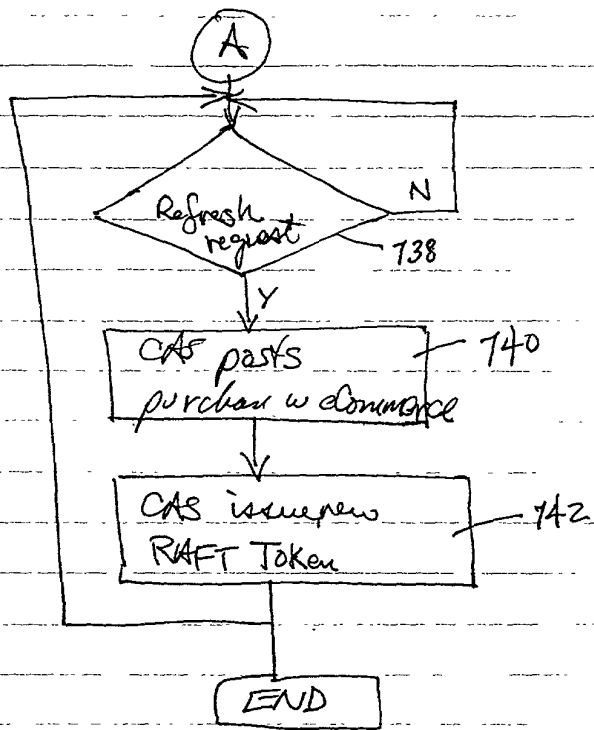 A
Refresh
request
N
738
Y
CAS posts
purchase w eCommerce
740
CAS issue new
RAFT Token
742
END